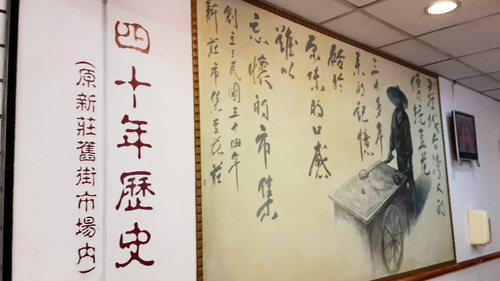 四十年歷史
(原新莊舊街市場內)
代台灣人的
傳統美
三十多年
來的記憶
原味的口感
難以
忘懷的市集
創立于民國三十四年
新莊市集